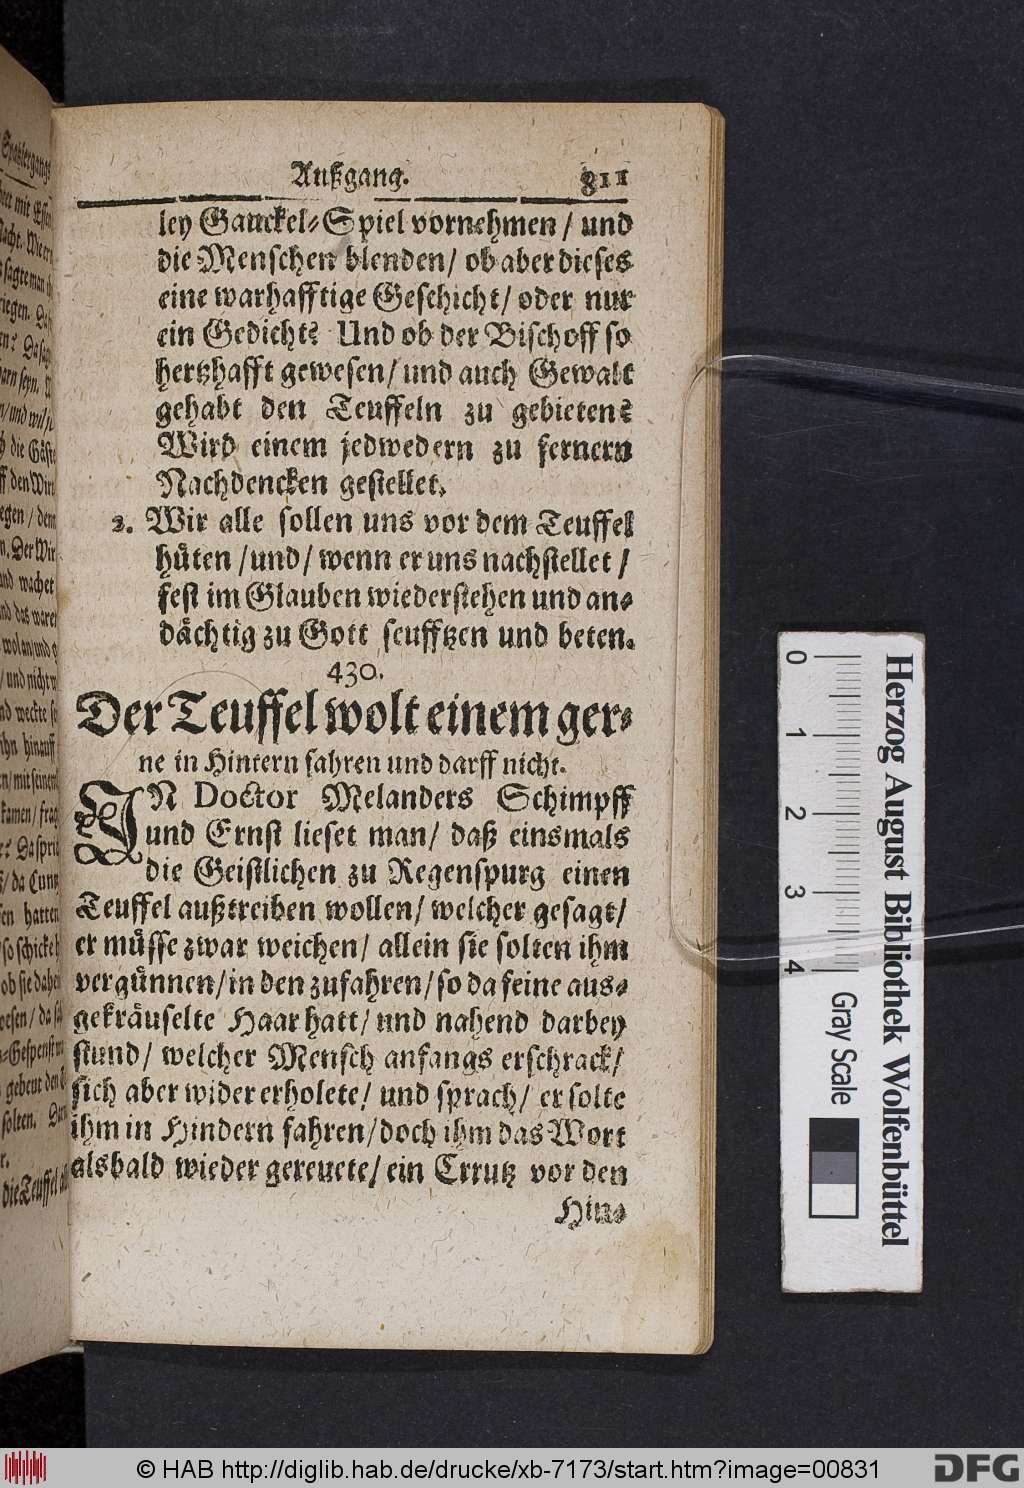 Außgang. 811
ley Gauckel-Spiel vornehmen / und
die Menschen blenden / ob aber dieses
eine warhafftige Geschicht / oder nur
ein Gedicht? Und ob der Bischoff so
hertzhafft gewesen / und auch Gewalt
gehabt den Teuffeln zu gebieten?
Wird einem jedwedern zu fernern
Nachdencken gestellet.
2. Wir alle sollen uns vor dem Teuffel
hüten / und / wenn er uns nachstellet /
fest im Glauben wiederstehen und an-
dächtig zu Gott seufftzen und beten.
430.
Der Teuffel wolt einem ger-
ne in Hintern fahren und darff nicht.
IN Doctor Melanders Schimpff
und Ernst lieset man / daß einsmals
die Geistlichen zu Regenspurg einen
Teuffel außtreiben wollen / welcher gesagt /
er müsse zwar weichen / allein sie solten ihm
vergünnen / in den zufahren / so da seine aus-
gekräuselte Haar hatt / und nahend darbey
stund / welcher Mensch anfangs erschrack /
sich aber wider erholete / und sprach / er solte
ihm in Hindern fahren / doch ihm das Wort
alsbald wieder gereuete / ein Crrutz vor den
Hin-
0 1 2 3 4
Gray Scale
Herzog August Bibliothek Wolfenbüttel
© HAB http://diglib.hab.de/drucke/xb-7173/start.htm?image=00831
DFG